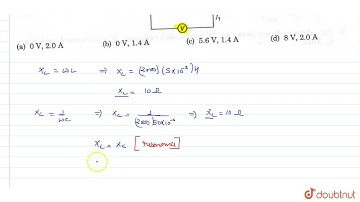 V
(a) 0 V, 2.0 A (b) 0 V, 1.4 A (c) 5.6 V, 1.4 A (d) 8 V, 2.0 A
X_L = ωL ⇒ X_L = (2000)(5×10⁻³)
X_L = 10 Ω
X_C = 1/ωC ⇒ X_C = ⇒ X_C = 10 Ω
X_L = X_C [resonance]
doubtnut